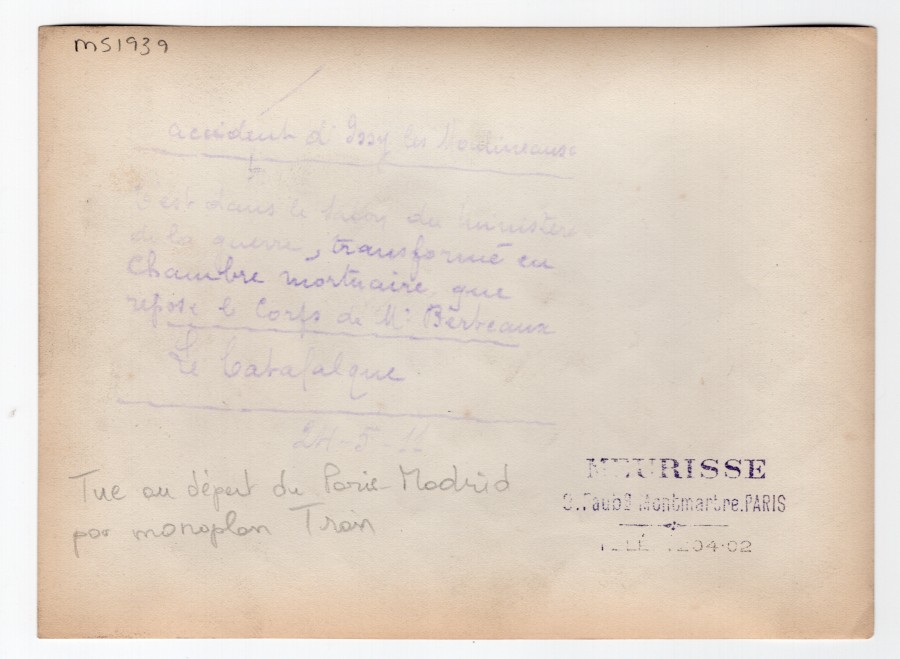 MS1939
accident d'Issy les Moulineaux
C'est dans le salon du ministère
de la guerre, transformé en
Chambre mortuaire que
repose le Corps de Mr Berteaux
Le Catafalque
24-5-11
Tué au départ du Paris-Madrid
par monoplan Train
MEURISSE
Faubg Montmartre.PARIS
TÉLÉ 204-02